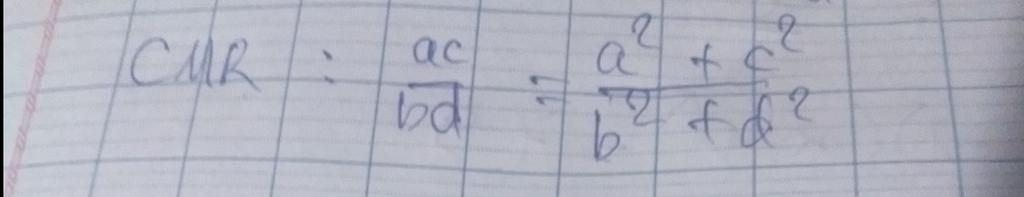 CMR : ac/bd = a² + c²/b² + d²